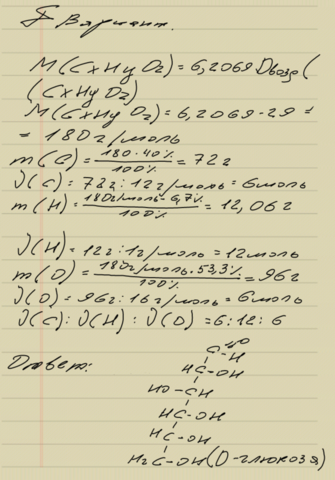 Вариант.
M(CxHyOz)=6,2069 Dвозд(
(CxHyOz)
M(CxHyOz)=6,2069·29=
=180г/моль
m(C)=180·40%/100%=72г
ν(C)=72г:12г/моль=6моль
m(H)=180г/моль·6,7%/100%=12,06г
ν(H)=12г:1г/моль=12моль
m(O)=180г/моль·53,3%/100%=96г
ν(O)=96г:16г/моль=6моль
ν(C):ν(H):ν(O)=6:12:6
Ответ:
C=O
H
HC-OH
HO-CH
HC-OH
HC-OH
H₂C-OH(D-глюкоза)